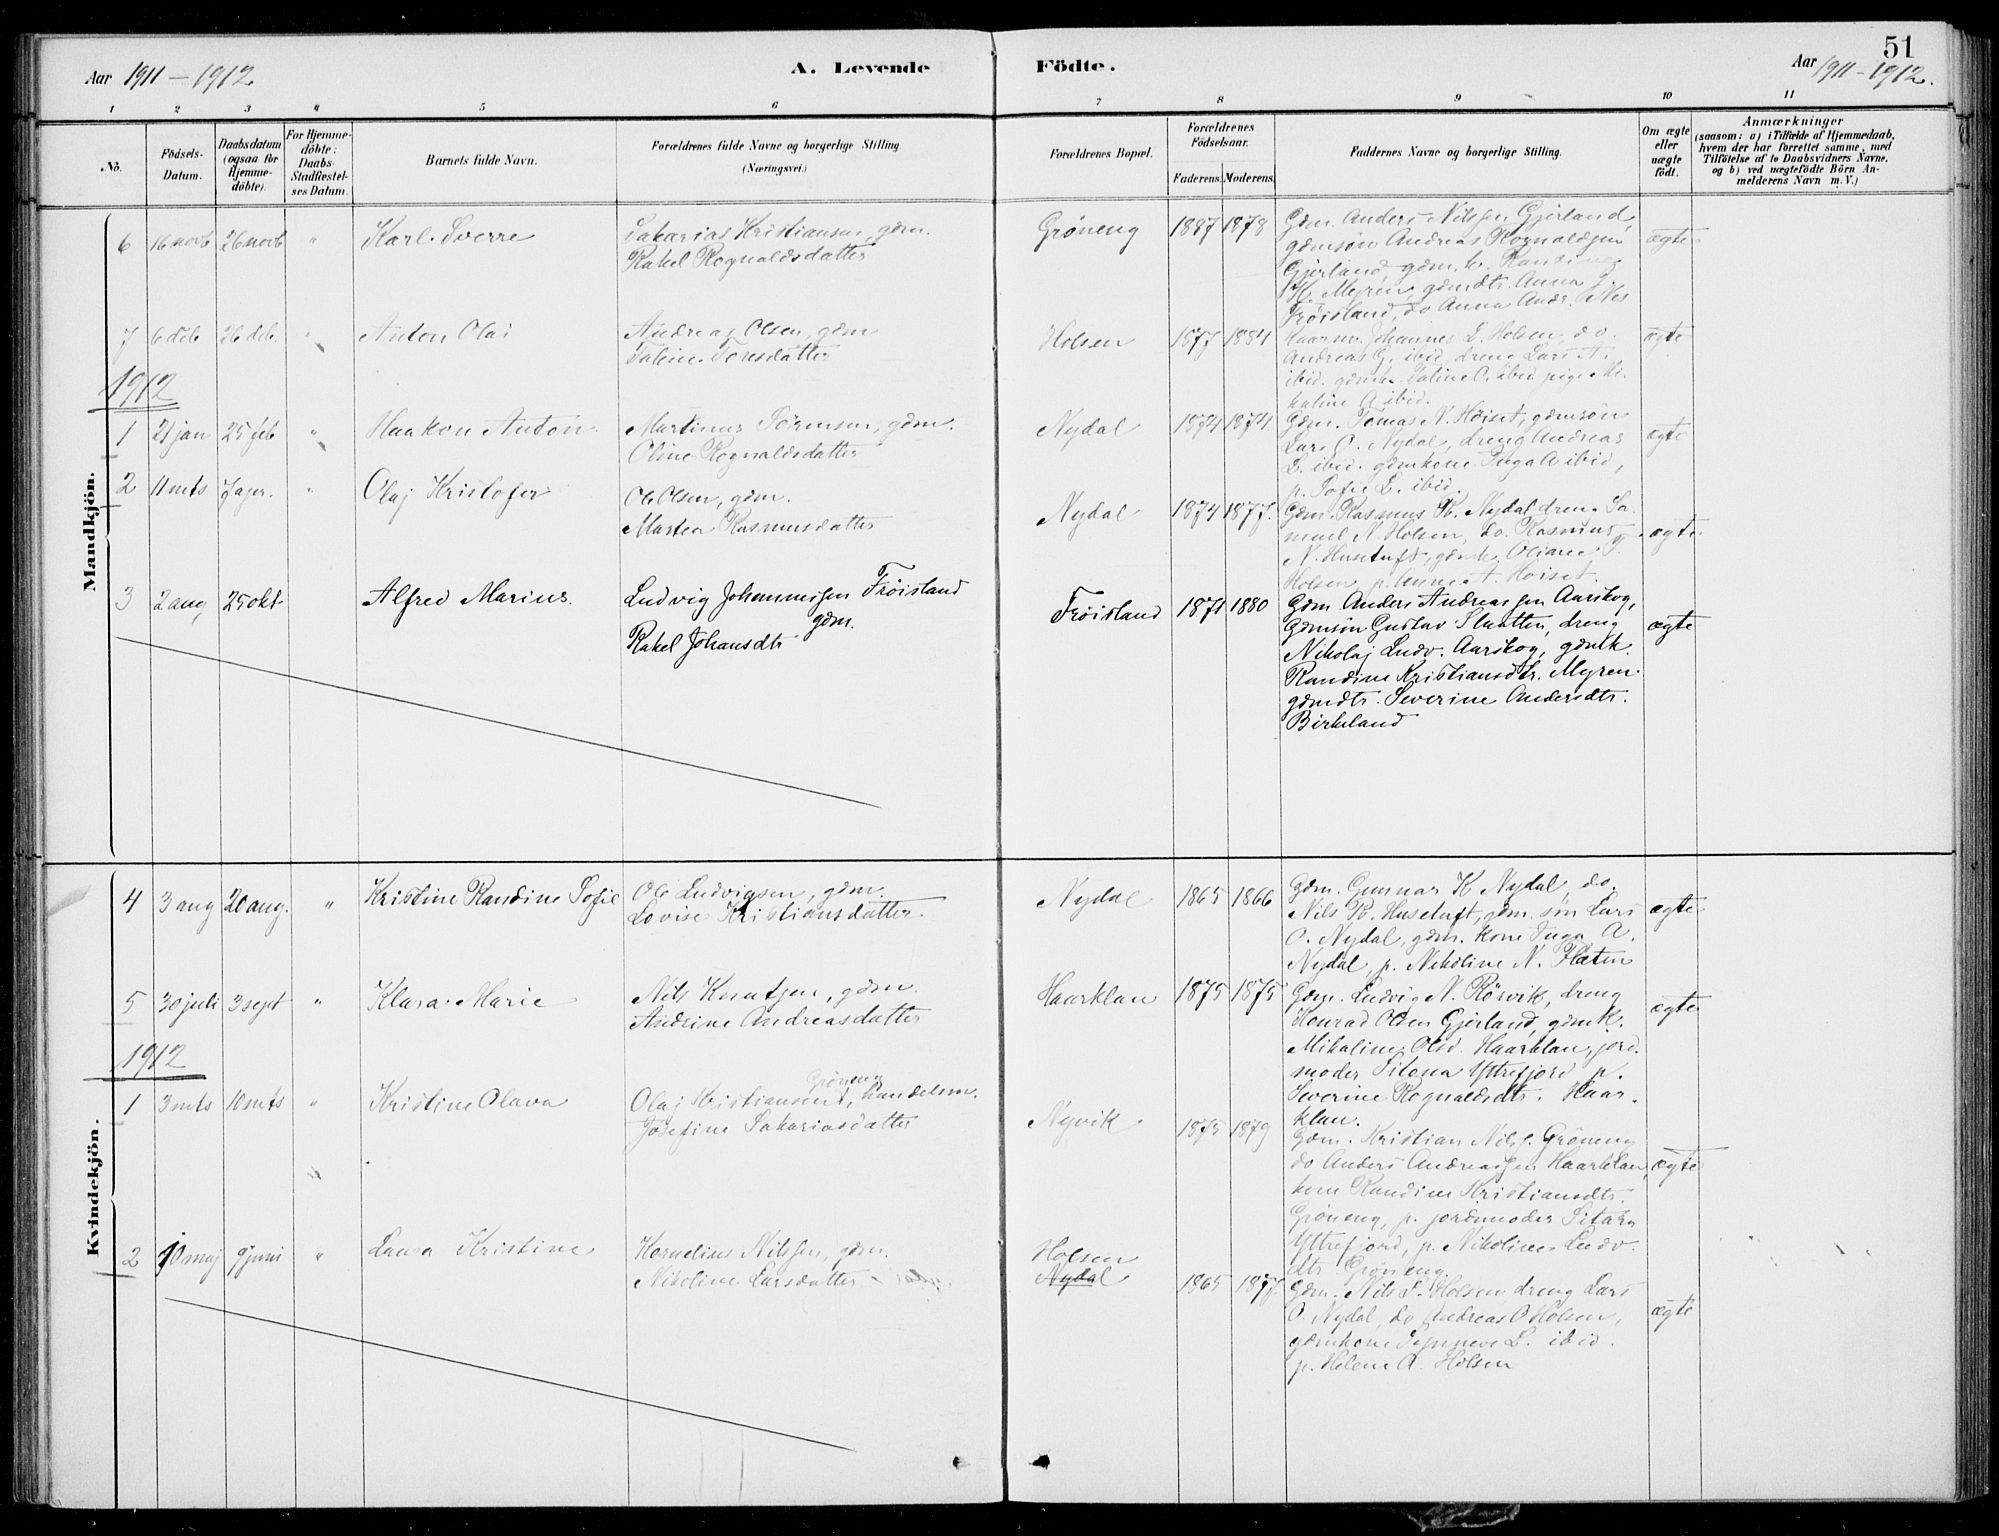 51
Aar 1911 – 1912
A. Levende Födte.
Aar 1911 – 1912.
1 2 3 4 5 6 7 8 9 10 11
No.
Födsels-Datum.
Daabsdatum (ogsaa for Hjemme-döbte).
For Hjemme-döbte: Daabs-Stadfæstel-ses Datum.
Barnets fulde Navn.
Forældrenes fulde Navne og borgerlige Stilling.
(Næringsvei.)
Forældrenes Bopæl.
Forældrenes Födselsaar.
Faderens. Moderens.
Faddernes Navne og borgerlige Stilling.
Om ægte eller uægte födt.
Anmærkninger
(saasom: a) i Tilfælde af Hjemmedaab, hvem der har forrettet samme, med Tilföielse af to Daabsvidners Navne, og b) ved uægtefödte Börn An-melderens Navn m. V.)
Mandkjön.
6 16 novb 26 novb " Karl Sverre
Sakarias Kristiansen, gdm.
Rakel Rognaldsdatter
Gröneng 1887 1878
Gdm. Anders Nilssen Gjerland,
gdmsön Andreas Rognaldsen
Gjerland, gdm.k. Randine
K. Myren, gdmdtr. Anna J.
Tröisland, do Anna Andr. Nes
ægte
7 6 deb 26 deb. " Anton Olai
Andreas Olsen, gdm
Taline Toresdatter
Holsen 1877 1884
Kaarm. Johannes L. Holsen, do.
Andreas G. ibid, dreng Lars A.
ibid. gdmk. Taline O. ibid. pige Mi-
kaline A ibid.
ægte
1912
1 21 jan 25 feb " Haakon Anton
Martinus Sörensen, gdm.
Oline Rognaldsdatter
Nydal 1874 1874
Gdm. Tomas N. Höiset, gdmsön
Lars O. Nydal, dreng Andreas
L. ibid. gdmkone Inga A ibid,
p. Sofie L. ibid.
ægte
2 11 mts 7 apr. " Olaj Kristofer
Ole Olsen, gdm.
Martea Rasmusdatter
Nydal 1874 1877.
Gdm. Rasmus K. Nydal, dren. Sa-
muel N. Holsen, do. Rasmus
N. Husetuft, gdmk. Oliane T.
Holsen, p. Anne A. Höiset.
ægte
3 2 aug 25 okt Alfred Marius.
Ludvig Johannessen Tröisland
gdm.
Rakel Johansdtr
Tröisland 1871 1880
Gdm Anders Andreassen Aarskog,
Gdmsön Gustav Slaatten, dreng
Nikolaj Ludv. Aarskog, gdmk.
Randine Kristiansdtr. Myren.
gdmdtr. Severine Andersdtr.
Birkeland
ægte
Kvindekjön.
4 3 aug 20 aug. " Kristine Randine Sofie
Ole Ludvigsen, gdm.
Lovise Kristiansdatter
Nydal 1865 1866
Gdm. Gunnar K Nydal, do.
Nils R. Husetuft, gdm. sön Lars
O. Nydal, gdm. kone Inga A.
Nydal, p. Nikoline N. Flaten
ægte
5 30 juli 3 sept " Klara Marie
Nils Knutsen, gdm.
Andrine Andreasdatter
Haarklau 1875 1875
Gdm. Ludvig N. Rörvik, dreng
Konrad Olsen Gjerland, gdmk.
Mikaline Olsd. Haarklau, jord-
moder Sitona Yttrefjord p.
Severine Rognaldsdtr. Haar-
klau.
ægte
1912
1 3 mts 10 mts " Kristine Olava
Gröneng
Olaj Kristiansen, handelsm.
Josefine Sakariasdatter
Nyvik 1875 1879
Gdm. Kristian Nils. Gröneng
do Anders Andreassen Haarklau,
kone Randine Kristiansdtr.
Gröneng, p. jordmoder Sitona
Yttrefjord, p. Nikoline Ludv.
dtr Gröneng.
ægte
2 10 maj 9 juni " Laura Kristine
Kornelius Nilssen, gdm.
Nikoline Larsdatter
Holsen
Nydal
1865 1877.
Gdm. Nils L. Holsen, dreng Lars
O. Nydal, do Andreas O Holsen,
gdmkone Synneve L. ibid.
p. Helene A. Holsen
ægte